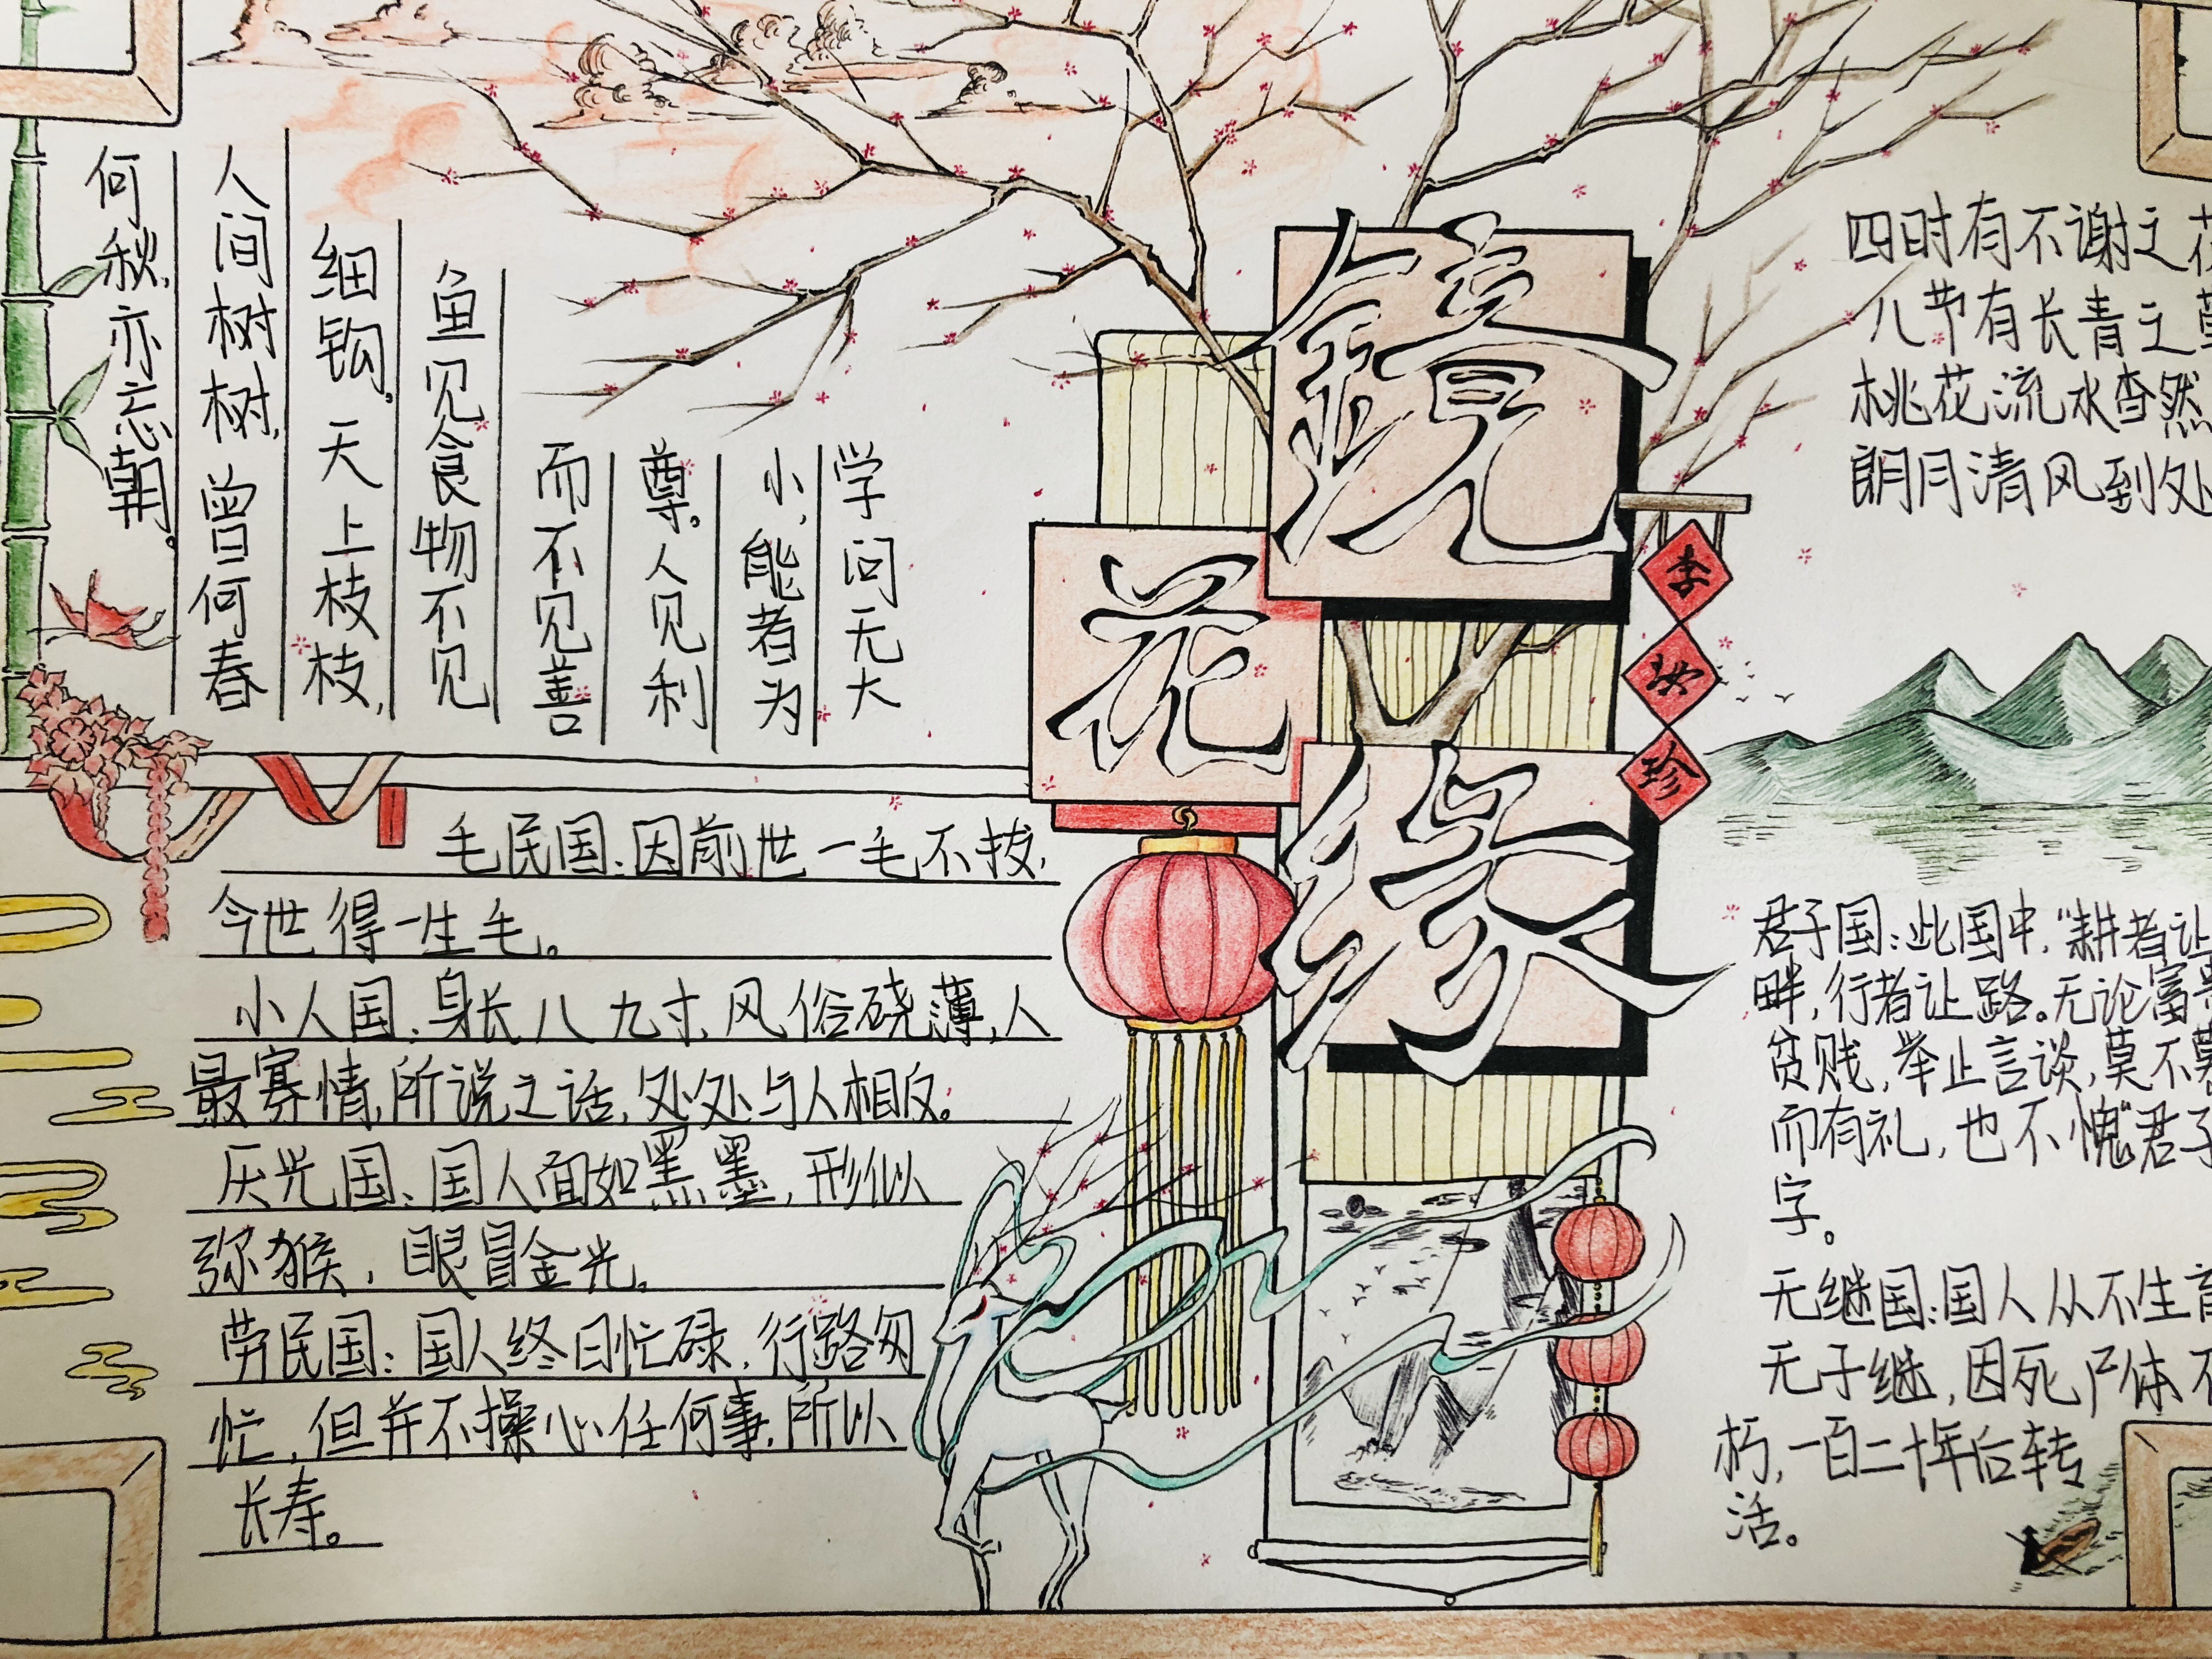 鏡
花
缘
李
汝
珍
学问无大
小，能者为
尊。人见利
而不见善
鱼见食物不见
细钩。天上枝枝，
人间树树，曾何春
何秋，亦忘朝。
毛民国：因前世一毛不拔，
今世得一生毛。
小人国：身长八九寸，风俗硗薄，人
最寡情，所说之话，处处与人相反。
国：国人面如黑墨，形似
弥猴，眼冒金光。
劳民国：国人终日忙碌，行路匆
忙，但并不操心任何事，所以
长寿。
四时有不谢之花
八节有长青之草
桃花流水杳然
朗月清风到处
君子国：此国中，“耕者让
畔，行者让路。无论富贵
贫贱，举止言谈，莫不
而有礼，也不愧“君子
字。
无继国：国人从不生育
无子继，因死尸体不
朽，一百二十年后转
活。